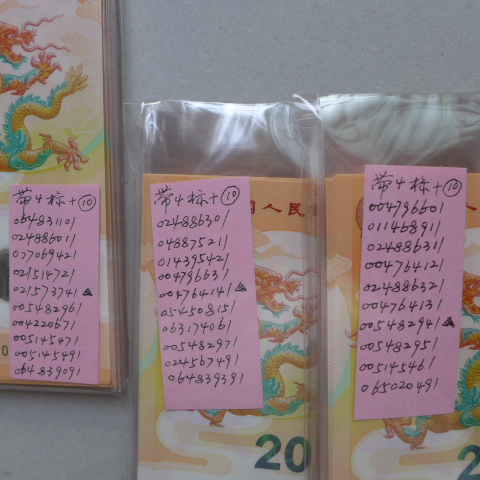 带4标十⑩
064831101
024886011
077069421
021514721
021573741
005482961
004220671
005145471
005145491
064839091
0
带4标十⑩
024886301
048875211
014395421
004796631
004764141
054508151
063174061
005482971
024567491
064839391
国人民
20
带4标十⑩
004796601
011468911
024886311
004764121
024886321
004764131
005482941
005482951
005145461
065020491
2